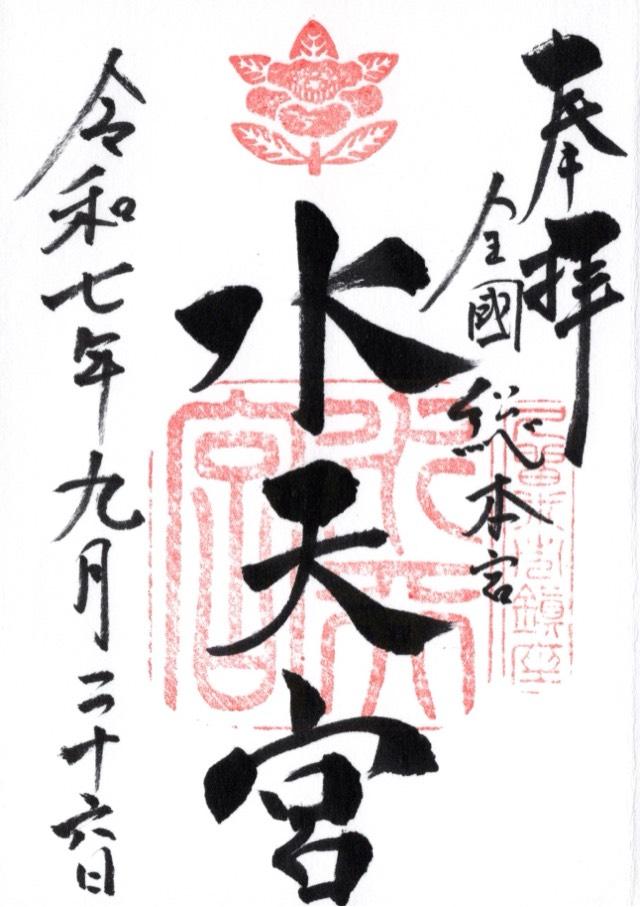 奉拝
全國総本宮
水天宮
令和七年九月二十六日